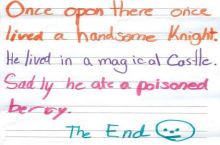 Once opon there once
lived a handsome Knight.
He lived in a magical Castle.
Sadly he ate a poisoned
berry.
The End